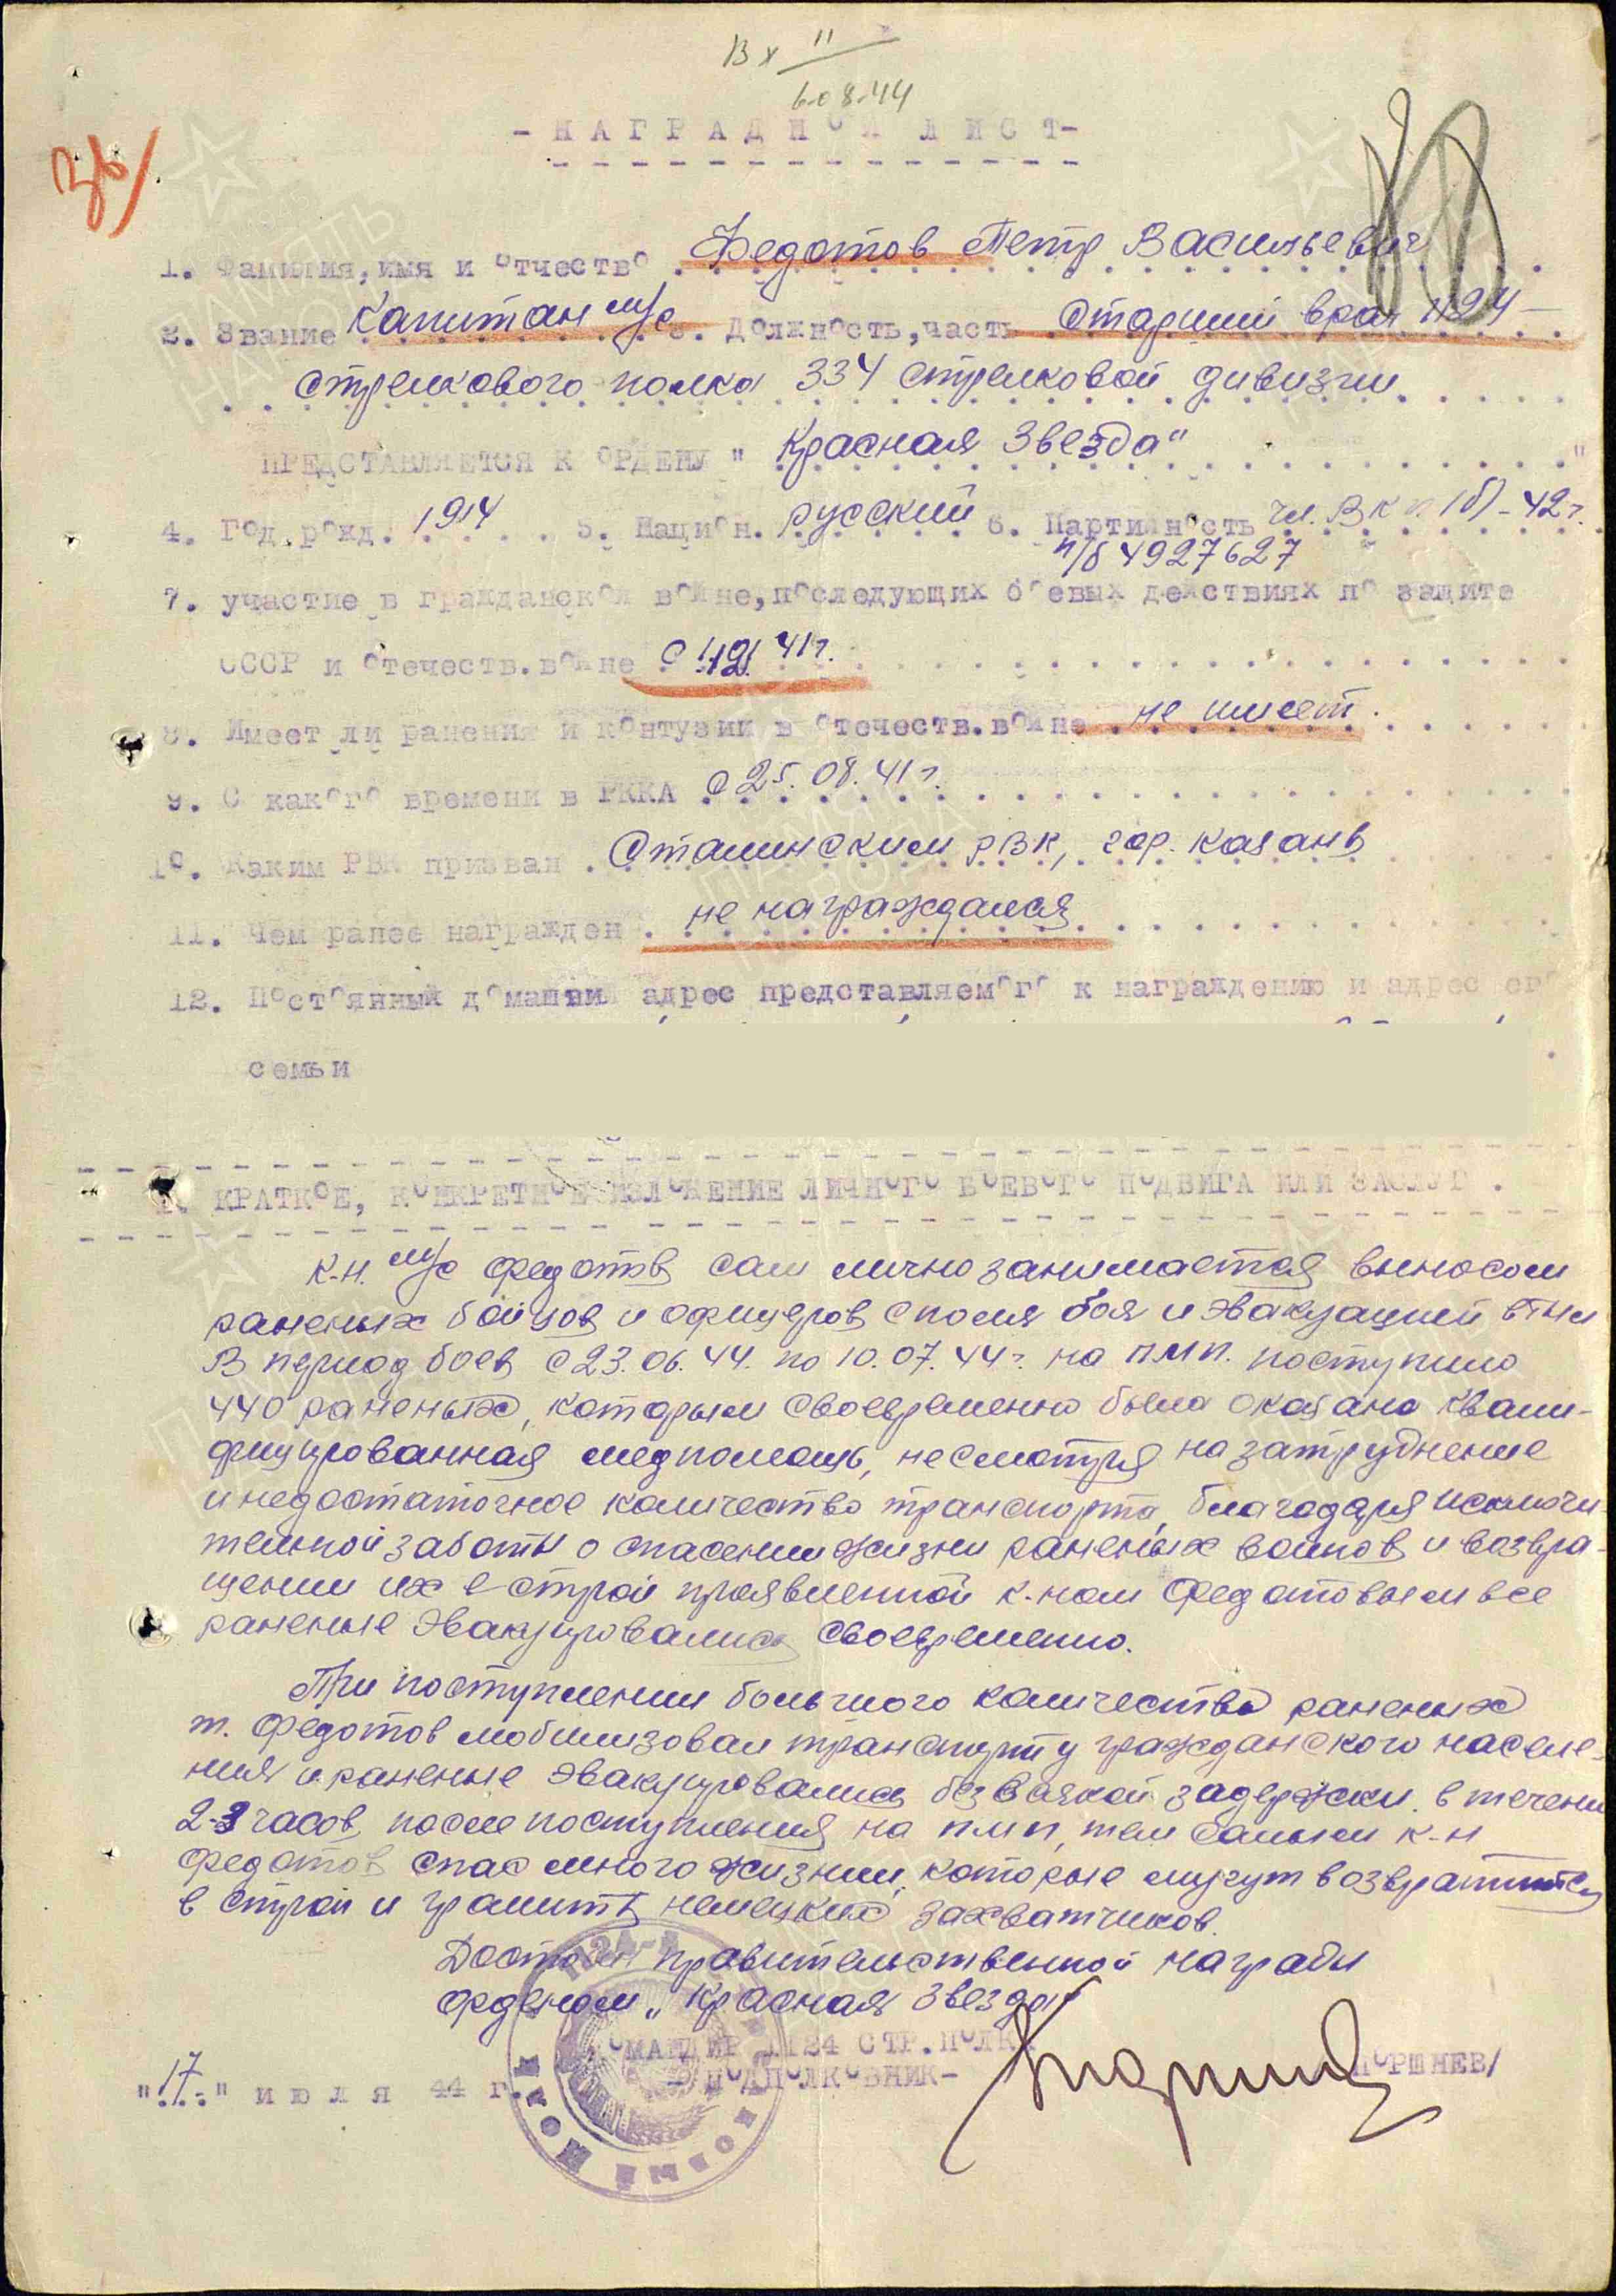 Вх 11
6.08.44
-НАГРАДНОЙ ЛИСТ-
1. Фамилия, имя и отчество Федотов Петр Васильевич
2. Звание Капитан м/с 3. Должность, часть Старший врач 1124
стрелкового полка 334 стрелковой дивизии
ПРЕДСТАВЛЯЕТСЯ К ОРДЕНУ " Красная Звезда"
4. Год рожд. 1914 5. Национ. русский 6. Партийность чл. ВКП(б)-42г.
п/б 4927627
7. участие в гражданской войне, последующих боевых действиях по защите
СССР и отечеств. войне с 41г.
8. Имеет ли ранения и контузии в отечеств. войне не имеет.
9. С какого времени в РККА с 25.08.41г.
10. Каким РВК призван Сталинским РВК, гор. Казань
11. Чем ранее награжден не награждался
12. Постоянный домашний адрес представляемого к награждению и адрес его
семьи
КРАТКОЕ, КОНКРЕТНОЕ ИЗЛОЖЕНИЕ ЛИЧНОГО БОЕВОГО ПОДВИГА ИЛИ ЗАСЛУГ.
к-н. м/с Федотов сам лично занимается выносом
раненых бойцов и офицеров с поля боя и эвакуацией в тыл
В период боев с 23.06.44. по 10.07.44г. на ПМП. поступило
440 раненых, которым своевременно была оказана квали-
фицированная медпомощь, несмотря на затруднение
и недостаточное количество транспорта, благодаря исключи
тельной заботы о спасении жизни раненых воинов и возвра-
щении их в строй проявленной к-ном Федотовым все
раненые эвакуировались своевременно.
При поступлении большого количества раненых
т. Федотов мобилизовал транспорт у гражданского населе-
ния и раненые эвакуировались без всякой задержки в течени
2-3 часов после поступления на ПМП, тем самым к-н
Федотов спас много жизний, которые могут возвратиться
в строй и громить немецких захватчиков.
Достоин правительственной награды
орденом "Красная Звезда"
КОМАНДИР 1124 СТР. ПОЛКА
- ПОДПОЛКОВНИК- /ПОРШНЕВ/
"17" июля 44 г.